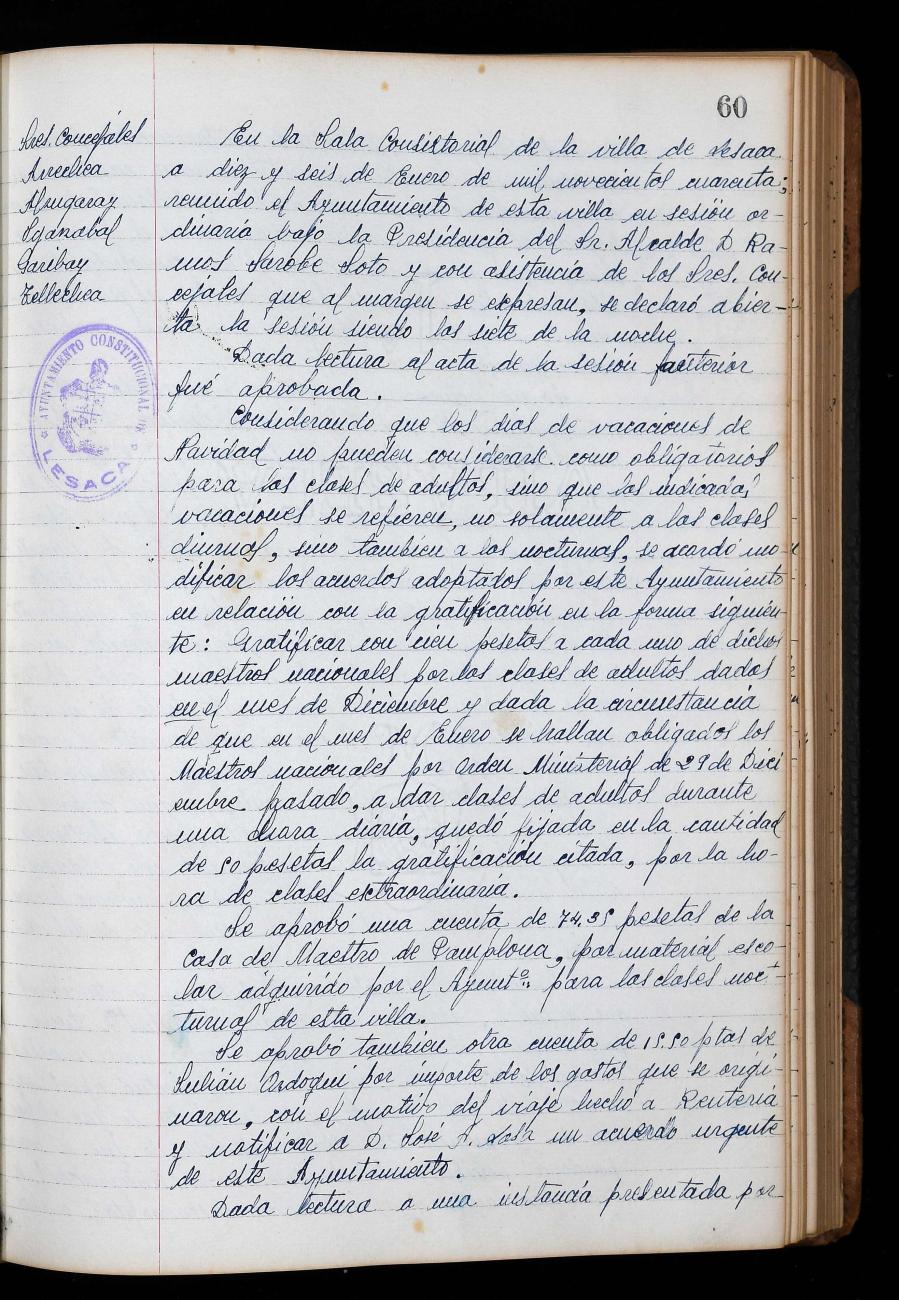 60
Sres. Concejales
Arrechea
Alzugaray
Iganabal
Garibay
Tellechea
AYUNTAMIENTO CONSTITUCIONAL DE
LESACA
En la Sala Consistorial de la villa de Lesaca
a diez y seis de Enero de mil novecientos cuarenta;
reunido el Ayuntamiento de esta villa en sesión or-
dinaria bajo la Presidencia del Sr. Alcalde D. Ra-
mos Sarobe Soto y con asistencia de los Sres. Con-
cejales que al margen se expresan, se declaró abier-
ta la sesión siendo las siete de la noche.
Dada lectura al acta de la sesión anterior
fué aprobada.
Considerando que los dias de vacaciones de
Navidad no pueden considerarse como obligatorios
para las clases de adultos, sino que las indicadas
vacaciones se refieren, no solamente a las clases
diurnas, sino tambien a las nocturnas, se acordó mo-
dificar los acuerdos adoptados por este Ayuntamiento
en relación con la gratificación en la forma siguien-
te: Gratificar con cien pesetas a cada uno de dichos
maestros nacionales por las clases de adultos dados
en el mes de Diciembre y dada la circunstancia
de que en el mes de Enero se hallan obligados los
Maestros nacionales por Orden Ministerial de 29 de Dici
embre pasado, a dar clases de adultos durante
una hora diária, quedó fijada en la cantidad
de 50 pesetas la gratificación citada, por la ho-
ra de clases extraordinaria.
Se aprobó una cuenta de 74,35 pesetas de la
Casa de Maestro de Pamplona, por material esco-
lar adquirido por el Ayuntº. para las clases noc-
turnas de esta villa.
Se aprobó tambien otra cuenta de 15.50 ptas de
Julián Ordoqui por importe de los gastos que se origi-
naron, con el motivo del viaje hecho a Renteria
y notificar a D. José A. un acuerdo urgente
de este Ayuntamiento.
Dada lectura a una instancia presentada por